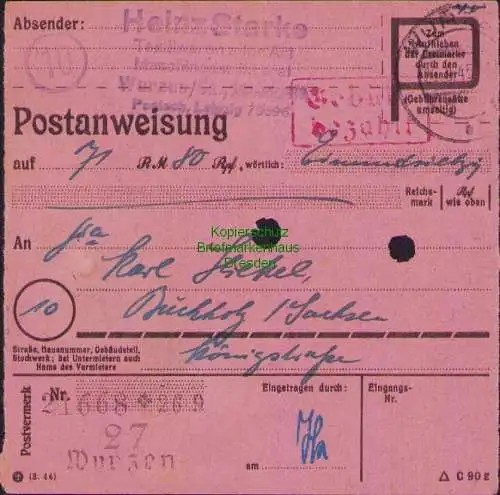 Absender:
Heinz Starke
10
Wurzen
Postsch. Leipzig
Zum
Aufkleben
der Freimarke
durch den
Absender
(Gebührensätze
umseitig)
Gebühr
bezahlt
Postanweisung
auf 71 RM 80 Rpf, wörtlich: Einundsiebzig
Reichs-
mark
Rpf
wie oben
An Fa
Karl Hietel,
10
Buchholz / Sachsen
Königstraße
Straße, Hausnummer, Gebäudeteil,
Stockwerk; bei Untermietern auch
Name des Vermieters
Kopierschutz
Briefmarkenhaus
Dresden
Postvermerk
Nr.
21668 * 26 9
27
Wurzen
Eingetragen durch:
am
Eingangs-
Nr.
(8. 44)
C 90 E